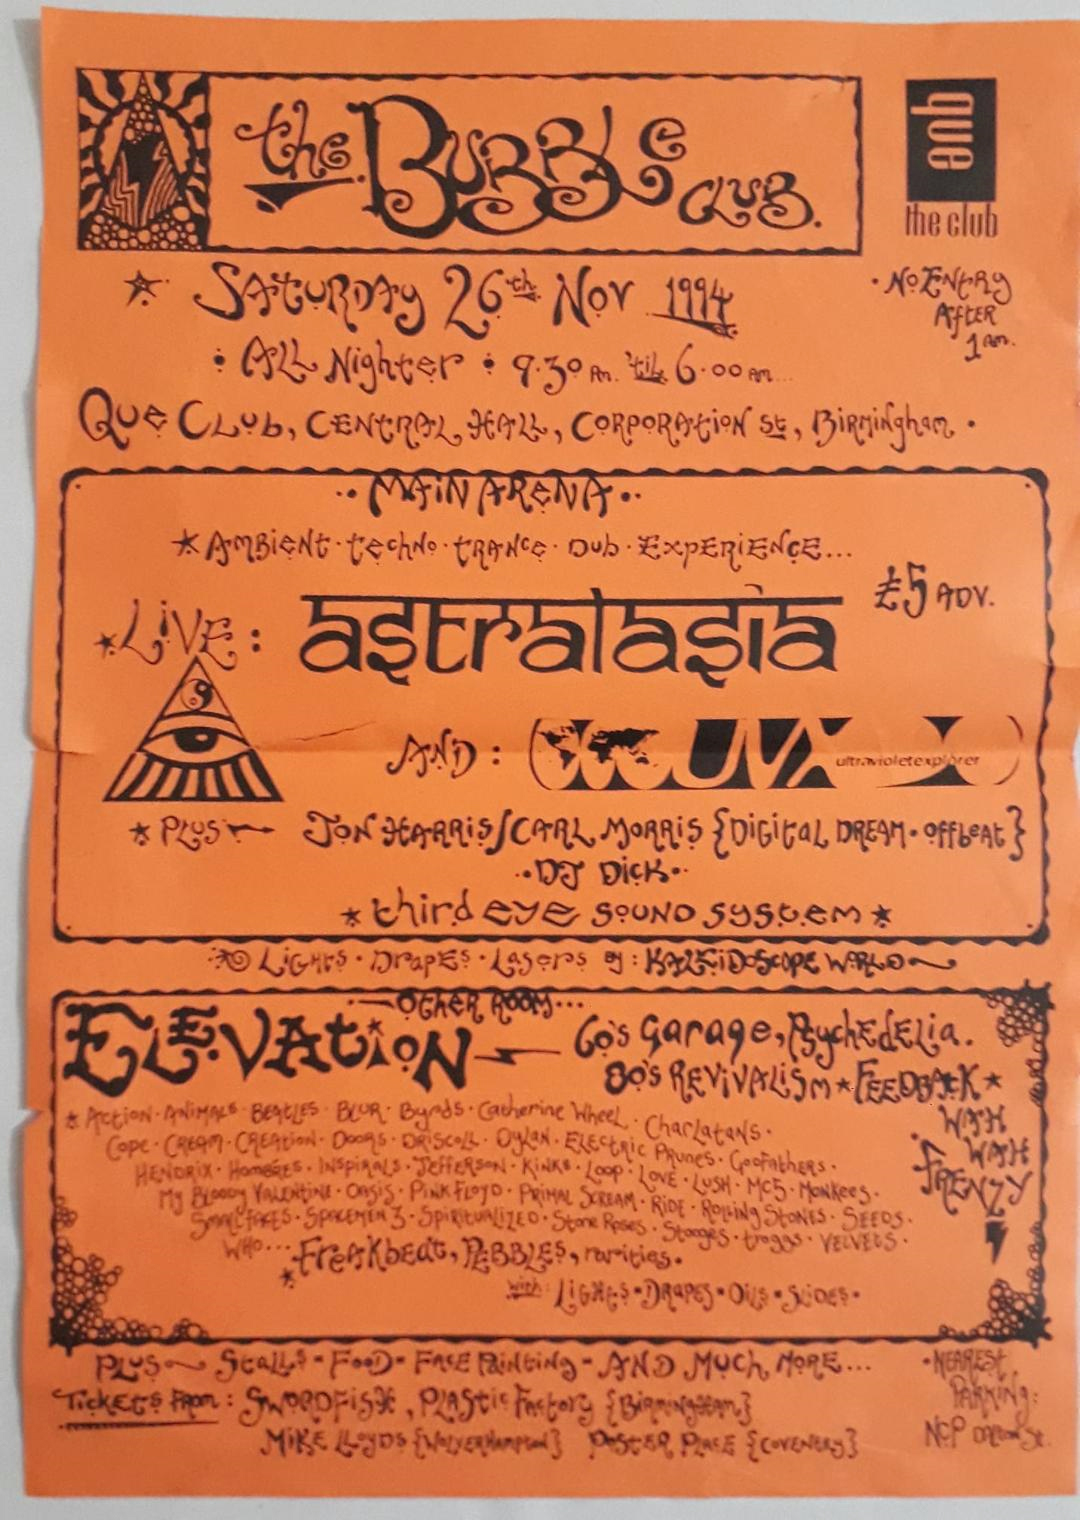 the Bubble Club.
que
the club
Saturday 26th Nov 1994
• No Entry After 1am.
• All Nighter • 9.30pm. 'til 6.00am...
Que Club, Central Hall, Corporation St, Birmingham •
•• Main Arena ••
Ambient · techno · trance · Dub · Experience...
£5 ADV.
Live: astralasia
AND: UVX
ultravioletexplorer
Plus Jon Harris/Carl Morris {Digital Dream • Offbeat}
•• DJ Dick ••
third eye sound system
Lights · Drapes · Lasers by: Kaleidoscope World
Other Room...
Elevation 60's Garage, Psychedelia.
80's Revivalism Feedback
Wah Wah Frenzy
Action · Animals · Beatles · Blur · Byrds · Catherine Wheel · Charlatans ·
Cope · Cream · Creation · Doors · Driscoll · Dylan · Electric Prunes · Godfathers ·
Hendrix · Hombres · Inspirals · Jefferson · Kinks · Loop · Love · Lush · MC5 · Monkees ·
My Bloody Valentine · Oasis · Pink Floyd · Primal Scream · Ride · Rolling Stones · Seeds ·
Small Faces · Spacemen 3 · Spiritualized · Stone Roses · Stooges · Troggs · Velvets ·
Who... Freakbeat, Pebbles, rarities.
with: Lights • Drapes • Oils • Slides •
Plus Stalls - Food - Face Painting - And Much More...
Tickets From: Swordfish, Plastic Factory {Birmingham}
Mike Lloyds {Wolverhampton} Poster Place {Coventry}
• Nearest Parking:
NCP Dalton St.